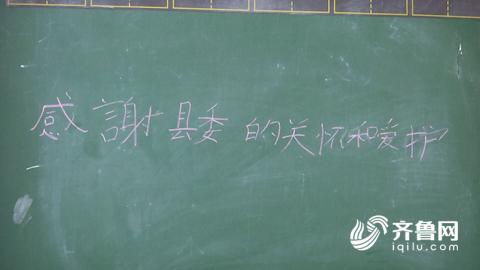 感謝县委的关怀和爱护
齐鲁网
iqilu.com